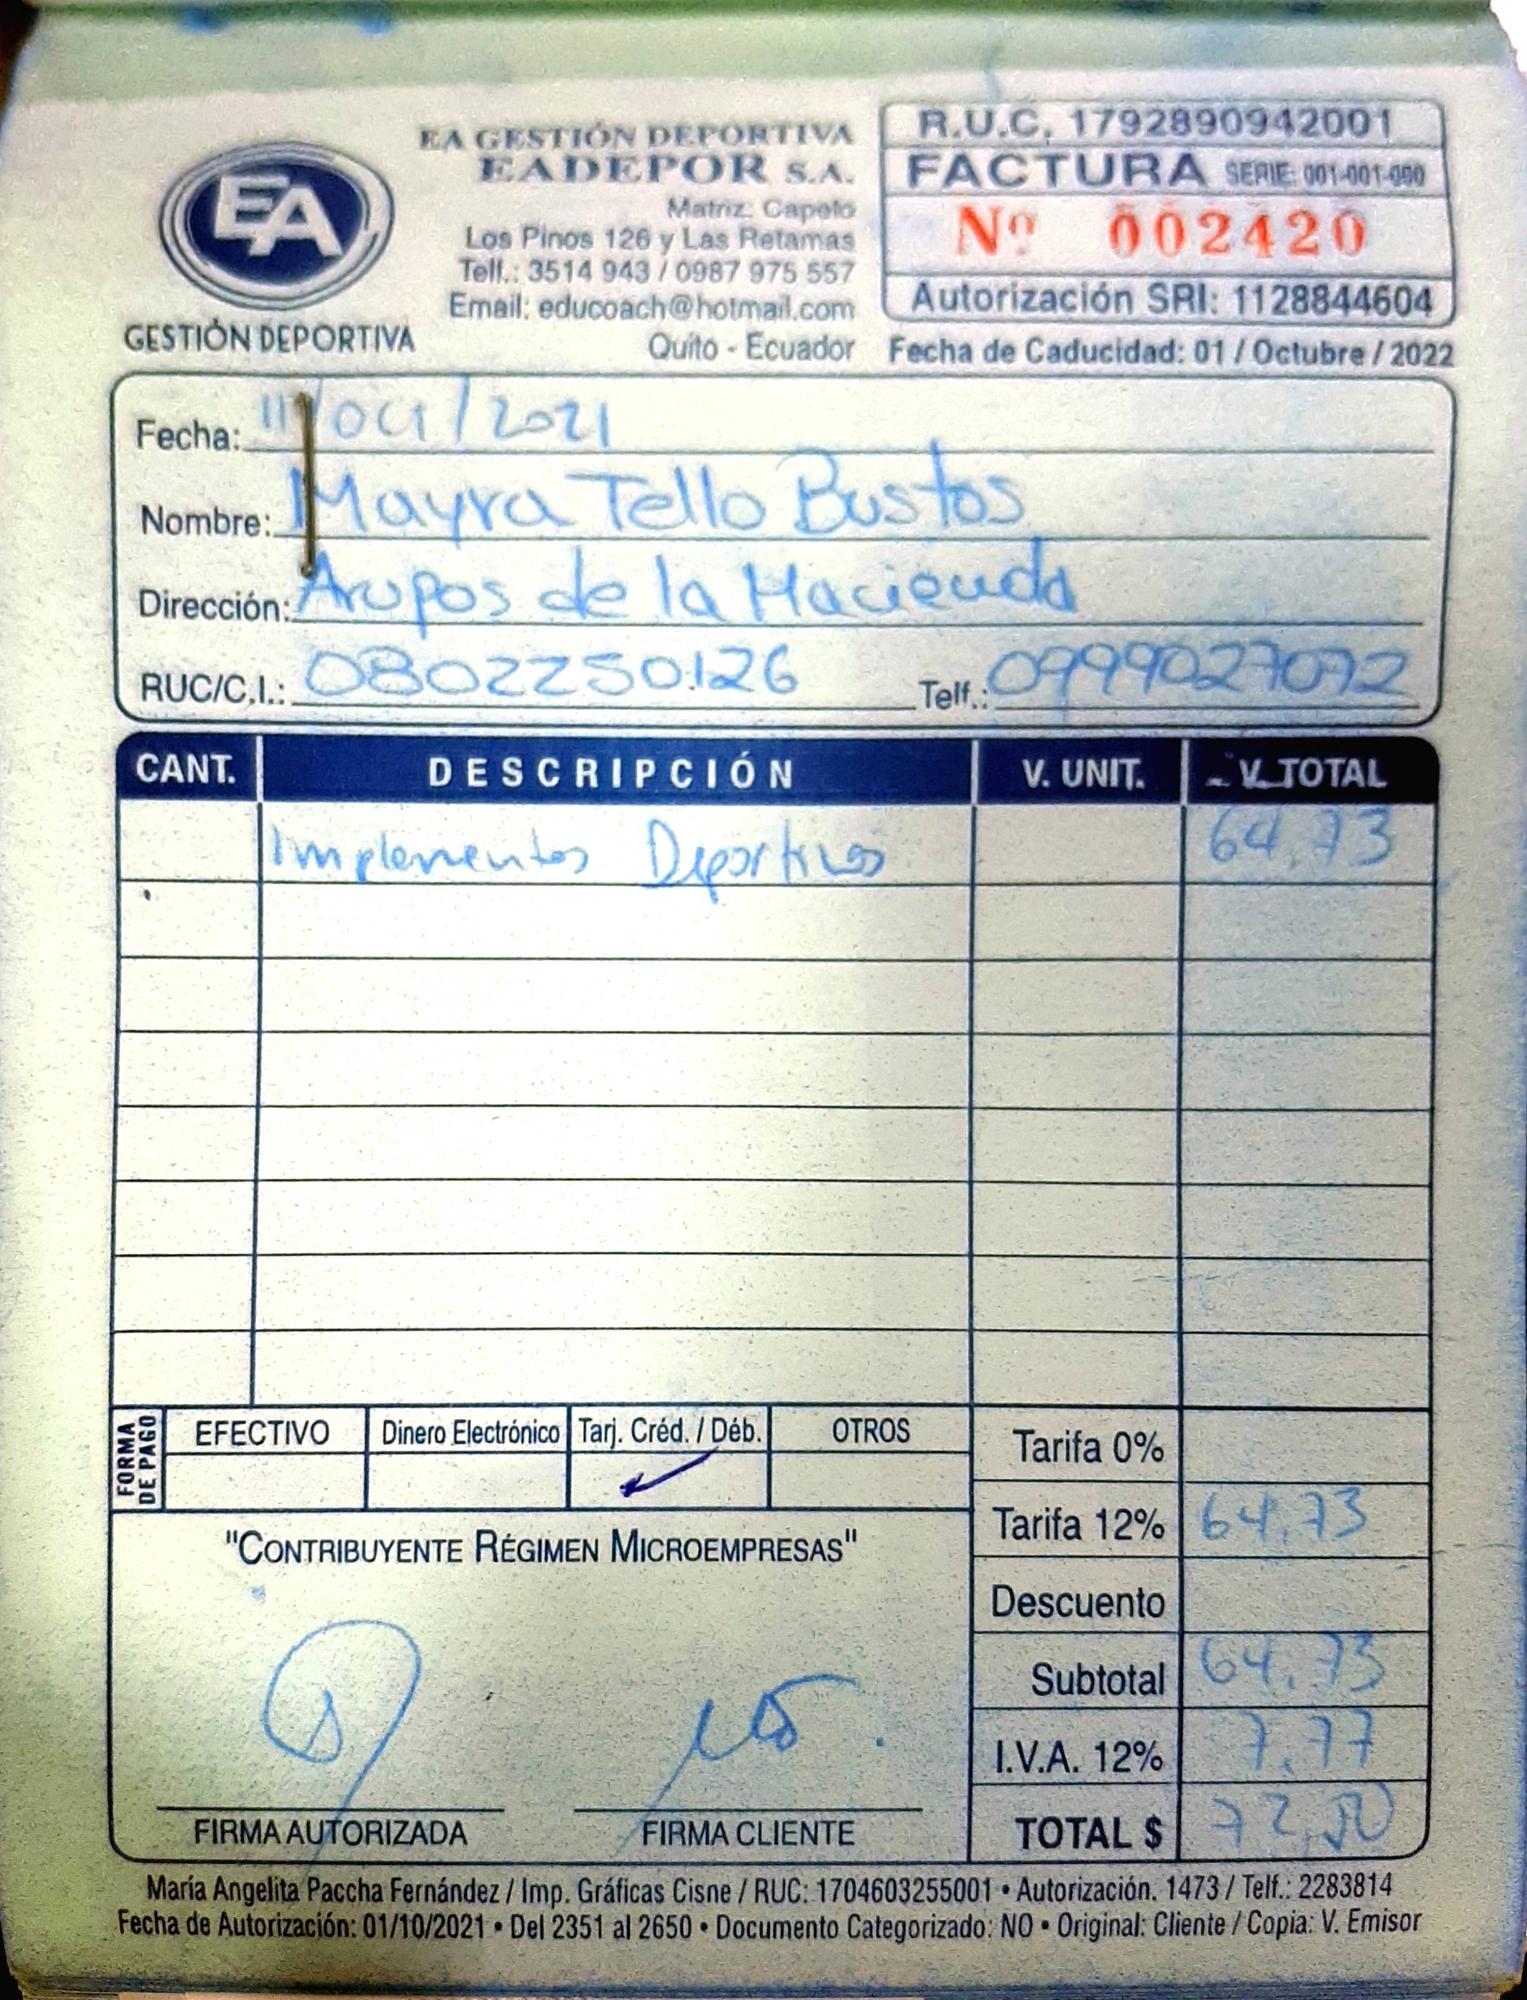 EA
GESTIÓN DEPORTIVA
EA GESTIÓN DEPORTIVA
EADEPOR S.A.
Matriz: Capelo
Los Pinos 126 y Las Retamas
Telf.: 3514 943 / 0987 975 557
Email: educoach@hotmail.com
Quito - Ecuador
R.U.C. 1792890942001
FACTURA SERIE: 001-001-000
Nº 002420
Autorización SRI: 1128844604
Fecha de Caducidad: 01 / Octubre / 2022
Fecha: 11/Oct/2021
Nombre: Mayra Tello Bustos
Dirección: Arupos de la Hacienda
RUC/C.I.: 0802250126 Telf.: 0999027072
CANT. DESCRIPCIÓN V. UNIT. V. TOTAL
Implementos Deportivos 64.73
FORMA DE PAGO
EFECTIVO Dinero Electrónico Tarj. Créd. / Déb. OTROS
Tarifa 0%
Tarifa 12% 64.73
Descuento
Subtotal 64.73
I.V.A. 12% 7.77
TOTAL $ 72,50
"CONTRIBUYENTE RÉGIMEN MICROEMPRESAS"
FIRMA AUTORIZADA FIRMA CLIENTE
María Angelita Paccha Fernández / Imp. Gráficas Cisne / RUC: 1704603255001 • Autorización. 1473 / Telf.: 2283814
Fecha de Autorización: 01/10/2021 • Del 2351 al 2650 • Documento Categorizado: NO • Original: Cliente / Copia: V. Emisor